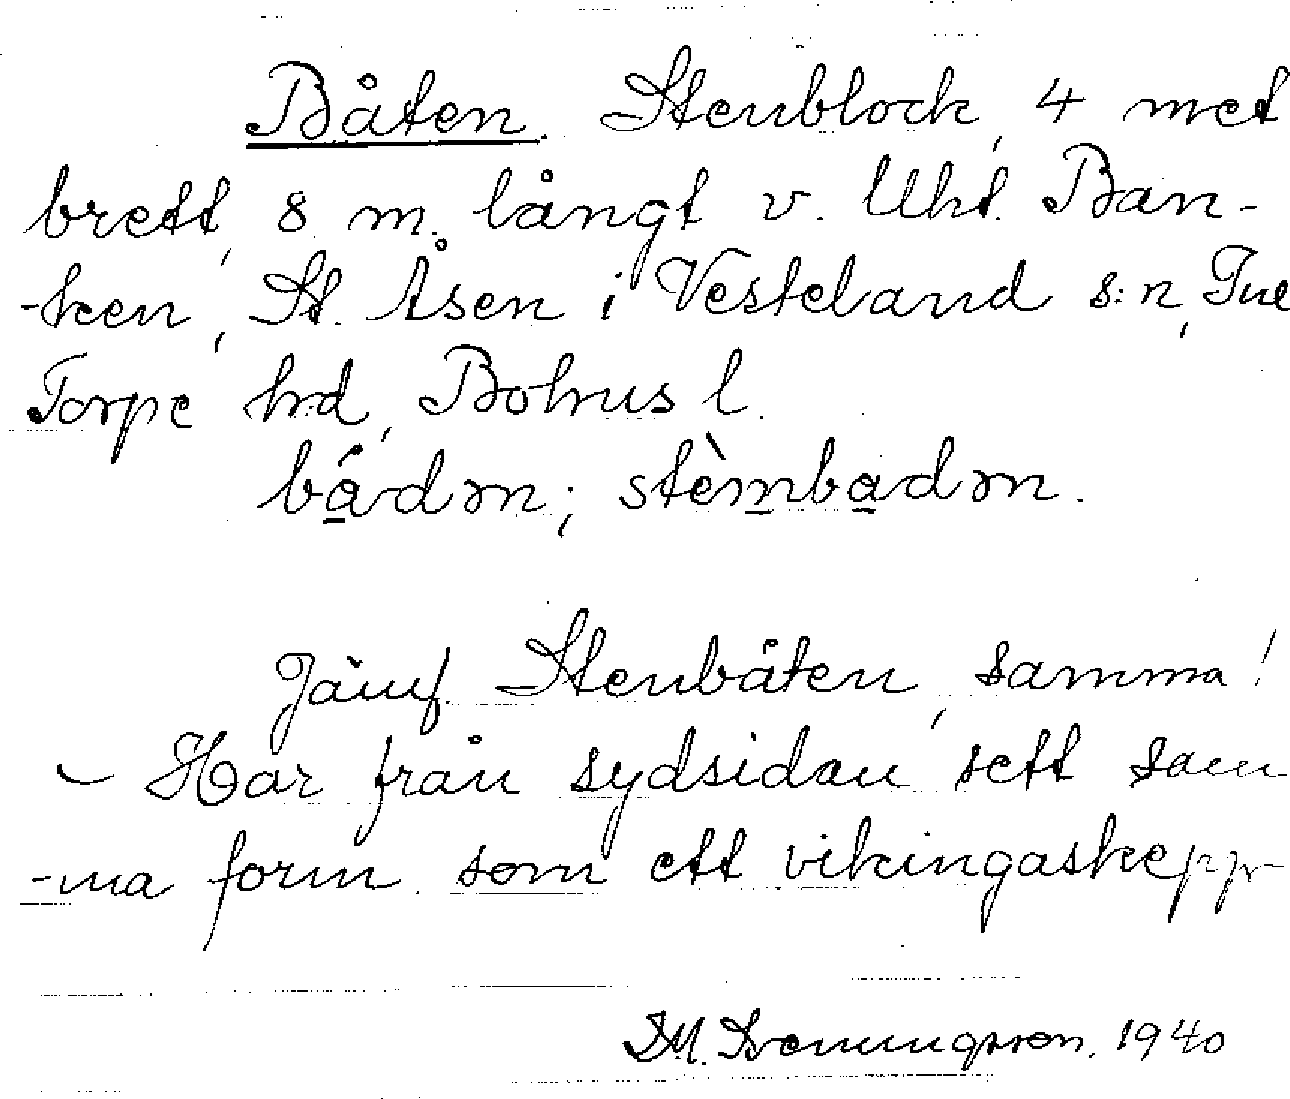 Båten. Stenblock, 4 met
brett, 8 m. långt v. Uht. Ban-
-ken, St. Åsen i Vesteland s:n, Tue
Torpe hrd, Bohus l.
bádən; stèmbadən.
Jämf. Stenbåten, samma!
– Har från sydsidan sett sam
-ma form som ett vikingaskepp
1940